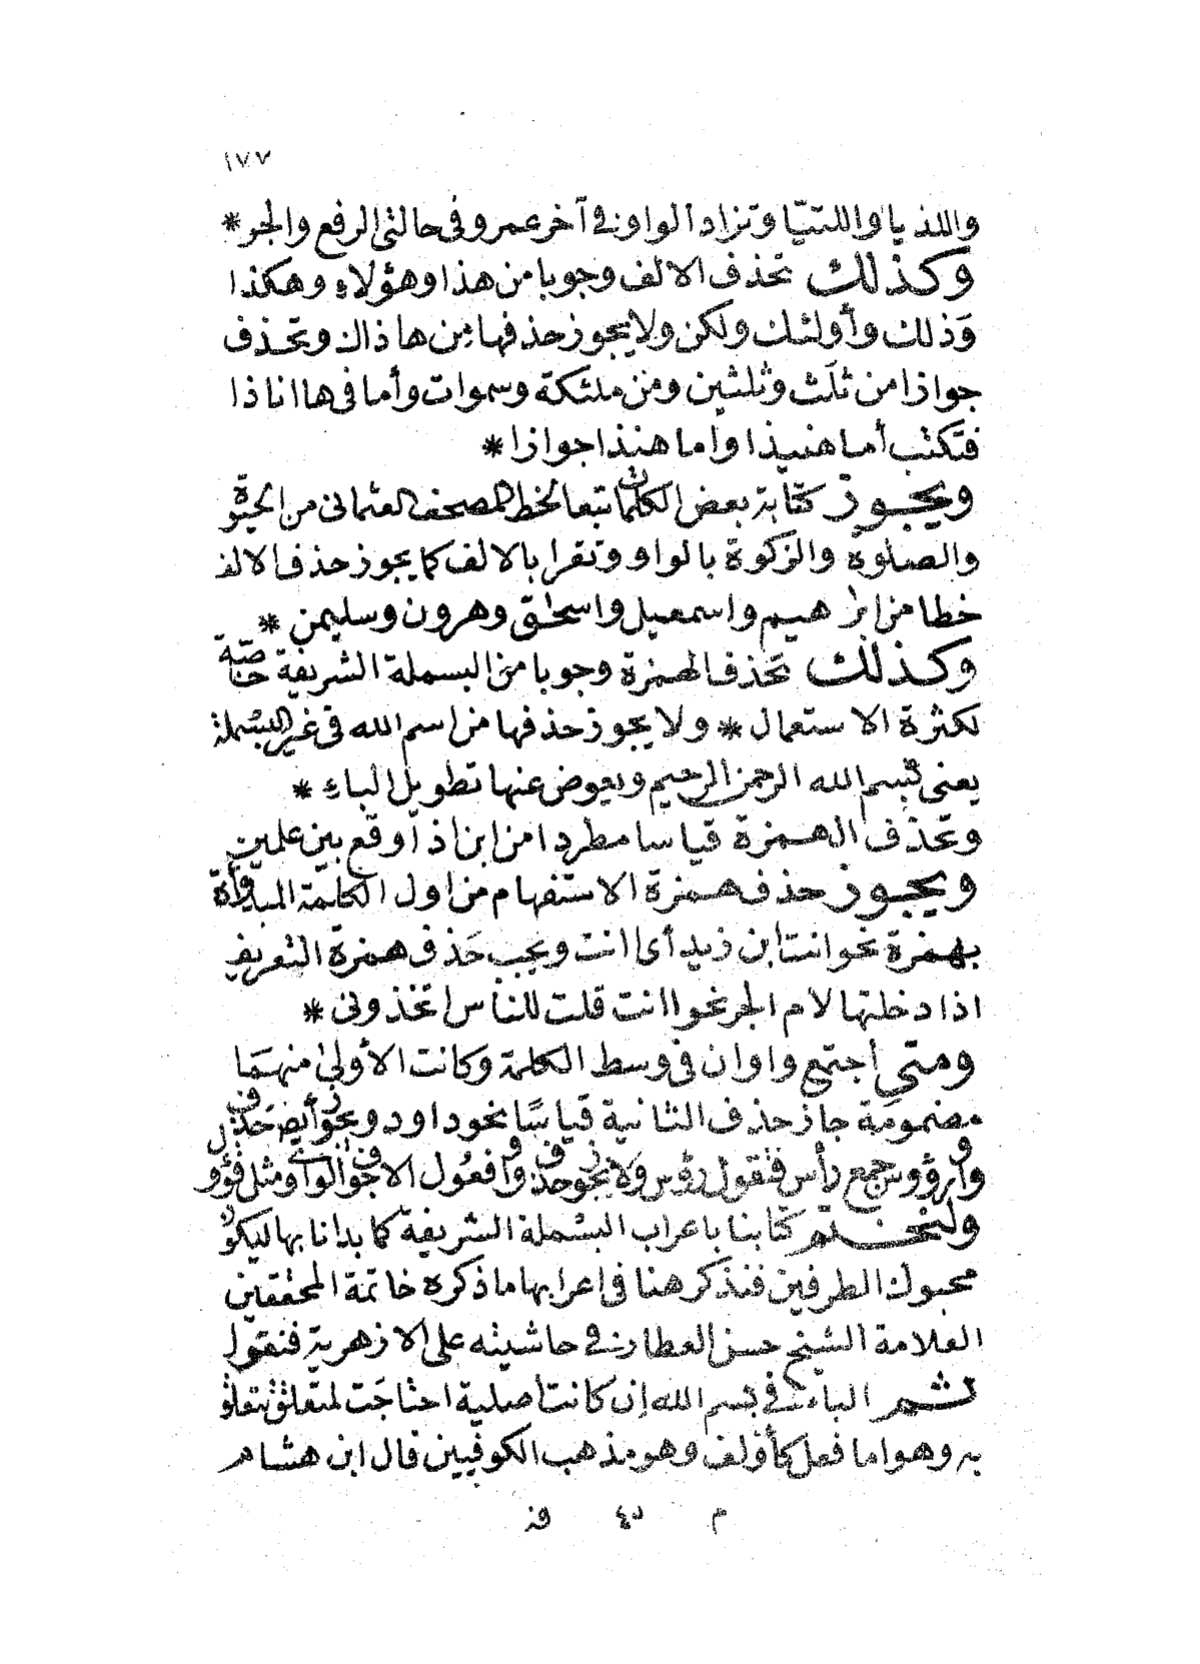 ١٧٧
واللذيا واللتيّا وتزاد الواو في آخر عمرو في حالتي الرفع والجر *
وكذلك تحذف الالف وجوبا من هذا وهؤلاء وهكذا
وذلك وأولئك ولكن ولا يجوز حذفها من هاذاك وتحذف
جوازا من ثلث وثلثين ومن ملئكة وسموات وأما في ها انا ذا
فتكتب أما هنيذا واما هنذا جوازا *
ويجوز كتابة بعض الكلمات تبعا لخط المصحف العثماني من الحيوة
والصلوة والزكوة بالواو وتقرا بالالف كما يجوز حذف الالف
خطا من ابرهيم واسمعيل واسحق وهرون وسليمن *
وكذلك تحذف الهمزة وجوبا من البسملة الشريفة خاصّة
لكثرة الاستعمال * ولا يجوز حذفها من اسم الله في غير البسملة
يعني كبسم الله الرحمن الرحيم ويعوض عنها تطويل الباء *
وتحذف الهمزة قياسا مطردا من ابن اذا وقع بين علمين
ويجوز حذف همزة الاستفهام من اول الكلمة المبدوأة
بهمزة نحو انت ابن زيد أى اانت ويجب حذف همزة التعريف
اذا دخلتها لام الجر نحو اانت قلت للناس اتخذوني *
ومتى اجتمع واوان في وسط الكلمة وكانت الأولى منهما
مضمومة جاز حذف الثانية قياسًا نحو داود ويجوز أيضا حذف
واو رؤوس جمع رأس فتقول رؤس ولا يجوز حذف واو فعول الاجوف الواوى مثل قؤول
ولنختتم كتابنا باعراب البسملة الشريفة كما بدانا بها ليكون
محبوك الطرفين فنذكر هنا في اعرابها ما ذكره خاتمة المحققين
العلامة الشيخ حسن العطار في حاشيته على الازهرية فنقول
ثم الباء في بسم الله إن كانت أصلية احتاجت لمتعلق تتعلق
به وهو اما فعل كأؤلف وهو مذهب الكوفيين قال ابن هشام
م